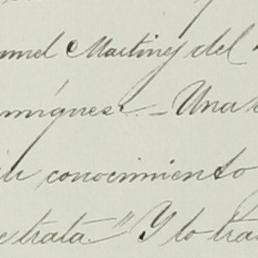 Martinez del
míquez. - Una
conocimiento
trata." Y lo tra